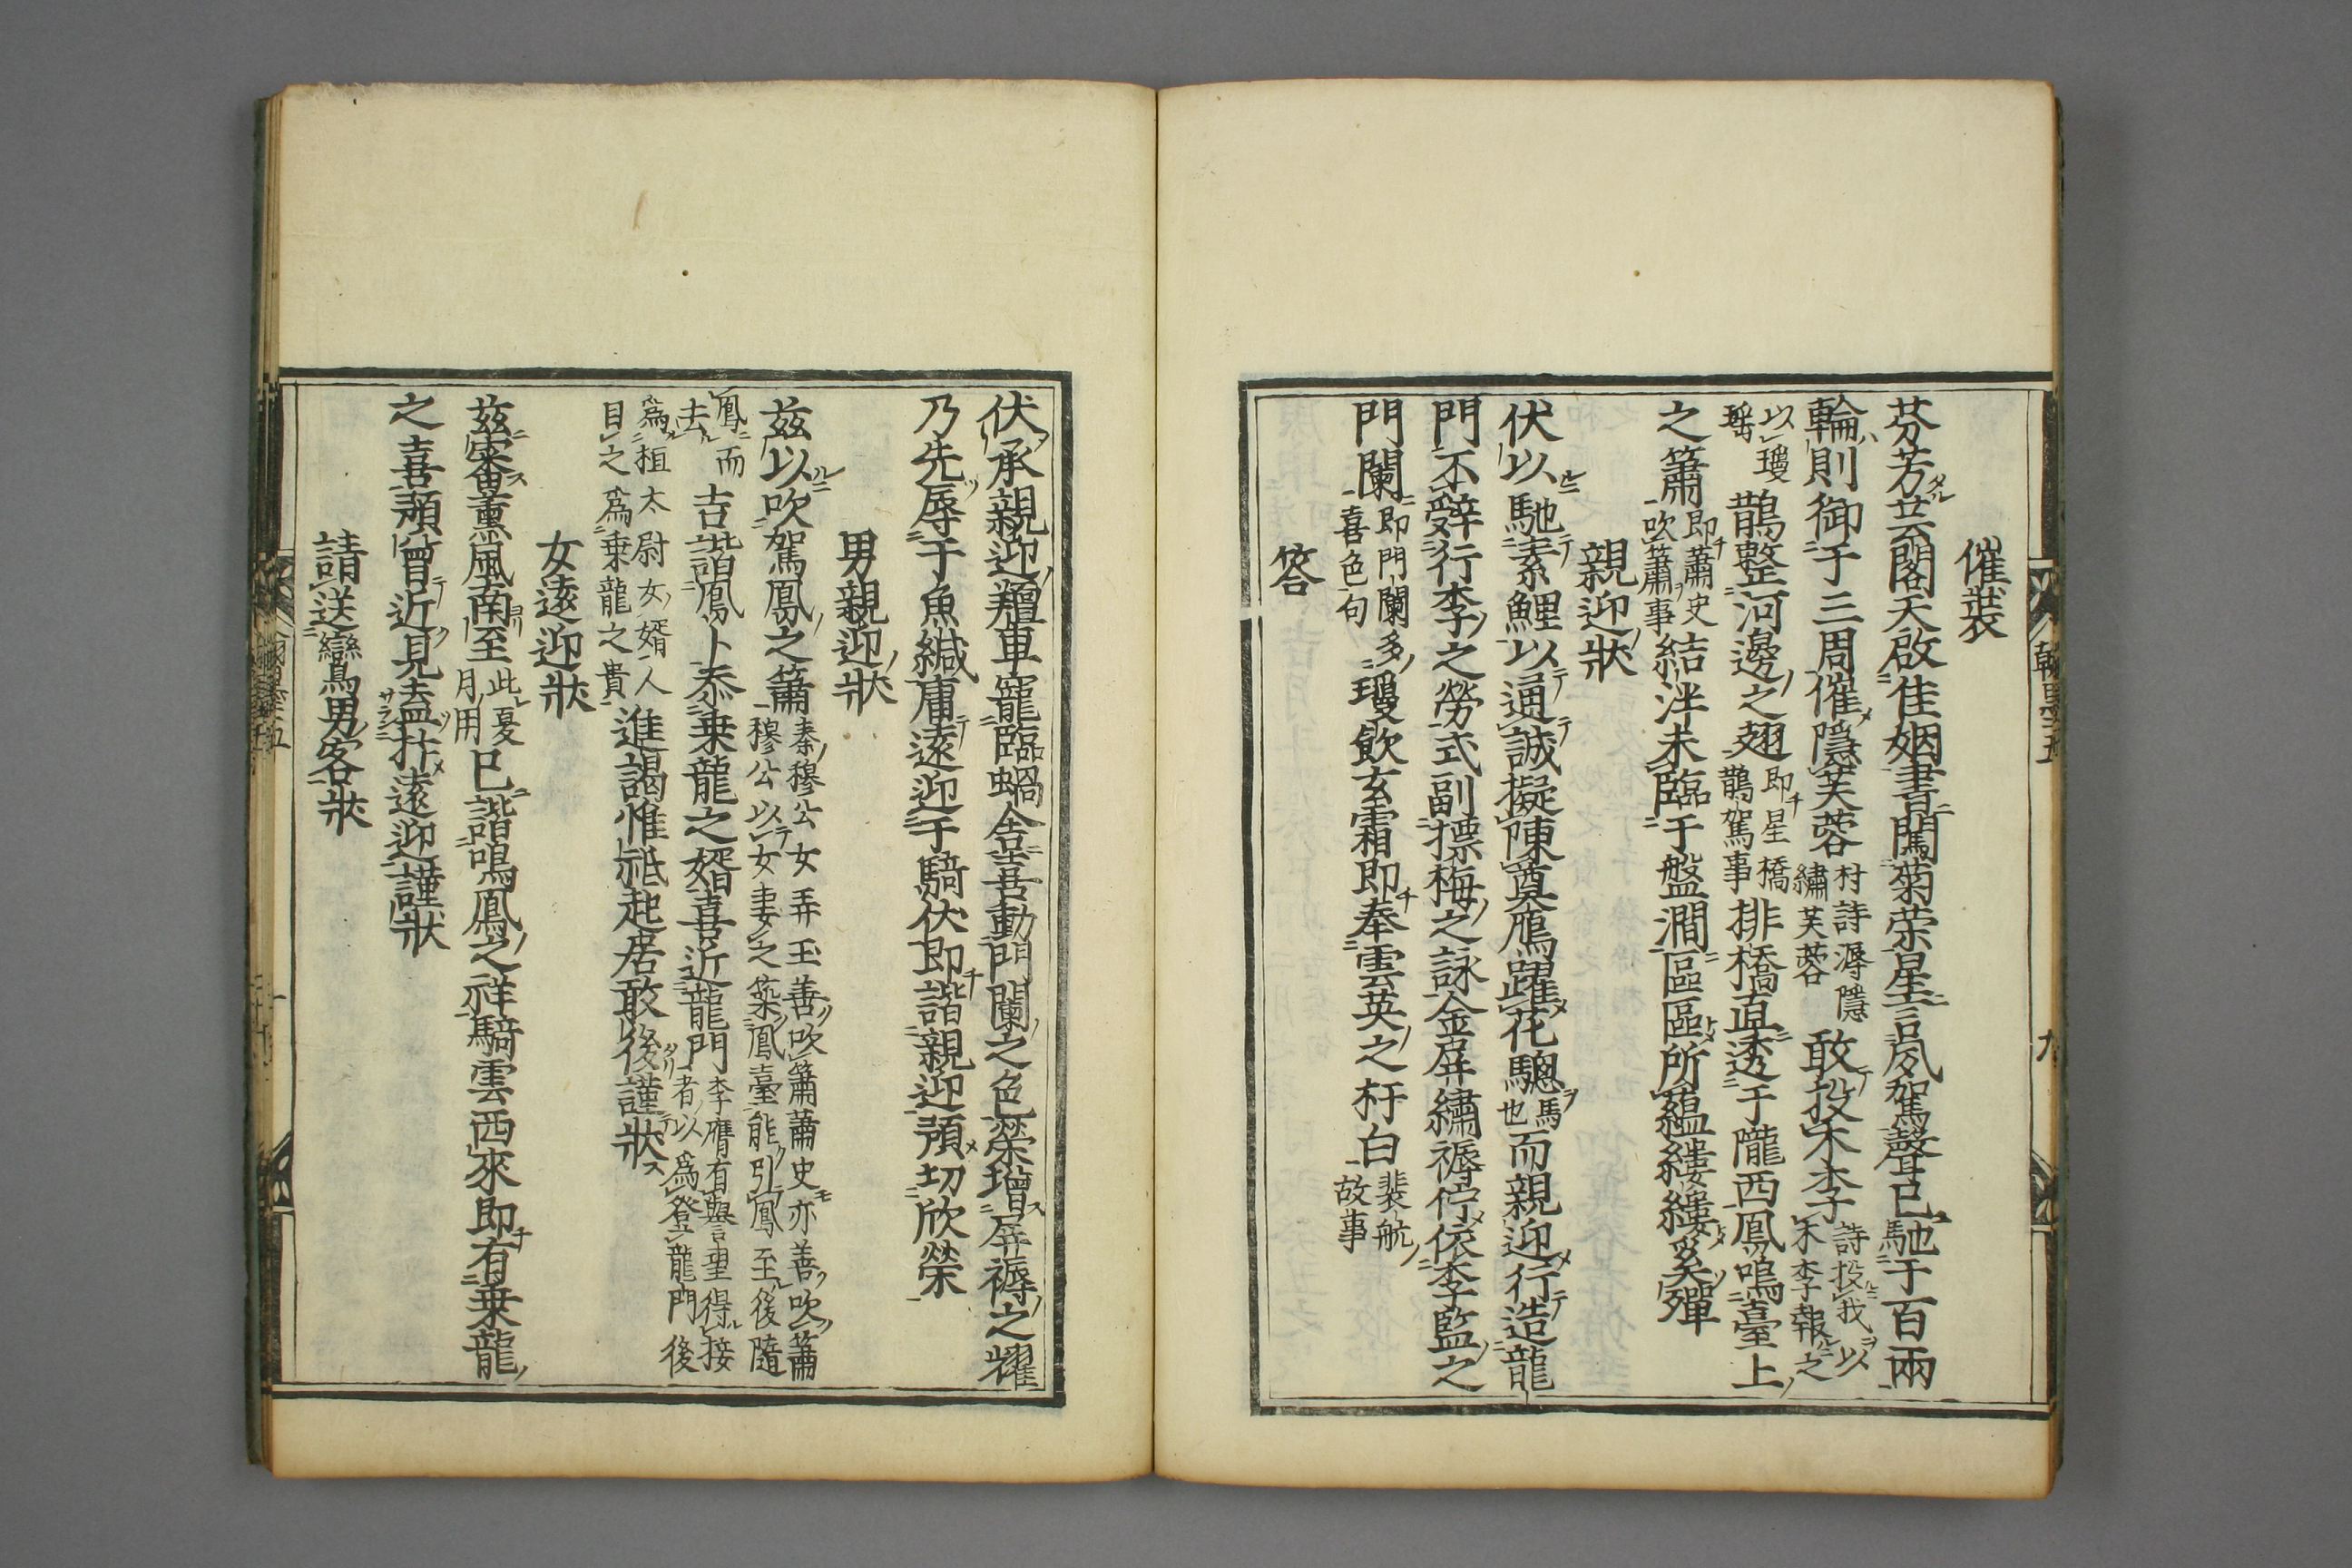 催裝
芬芳芸閣天啟佳姻書闖菊荣星言夙駕聲已馳于百兩
輪則御于三周催隱芙蓉
村詩溽隱
繡芙蓉
敢投禾李
詩投我以
禾李報之
以瓊
瑶
鵲整河邊之翅
即星橋
鵲駕事
排橋直透于隴西鳳鳴臺上
之簫
即蕭史
吹簫事
結泮未臨于盤澗區區所蘊縷縷奚殫
親迎狀
伏以馳素鯉以通誠擬陳奠鴈躍花驄
馬
也
而親迎行造龍
門不辭行李之勞式副摽梅之詠金屏繡褥佇依李監之
門闌
即門闌多
喜色句
瓊飲玄霜即奉雲英之杵臼
裴航
故事
答
伏承親迎羶車寵臨蝸舍喜動門闌之色榮增屏褥之耀
乃先辱于魚緘庸遠迎于騎伏即諧親迎預切欣榮
男親迎狀
茲以吹駕鳳之簫
秦穆公女弄玉善吹簫蕭史亦善吹簫
穆公以女妻之築鳳臺能引鳳至後隨
鳳而
去
吉諧鳳卜忝乗龍之婿喜近龍門
李膺有譽望得接
者以爲登龍門後
爲桓太尉女婿人
目之爲乗龍之貴
進謁惟祗起居敢後謹狀
女遠迎狀
茲審薰風南至
此夏
月用
已諧鳴鳳之祥騎雲西來即有乗龍
之喜預曾近見盍拚遠迎謹狀
請送鸞男客狀
翰墨五
九